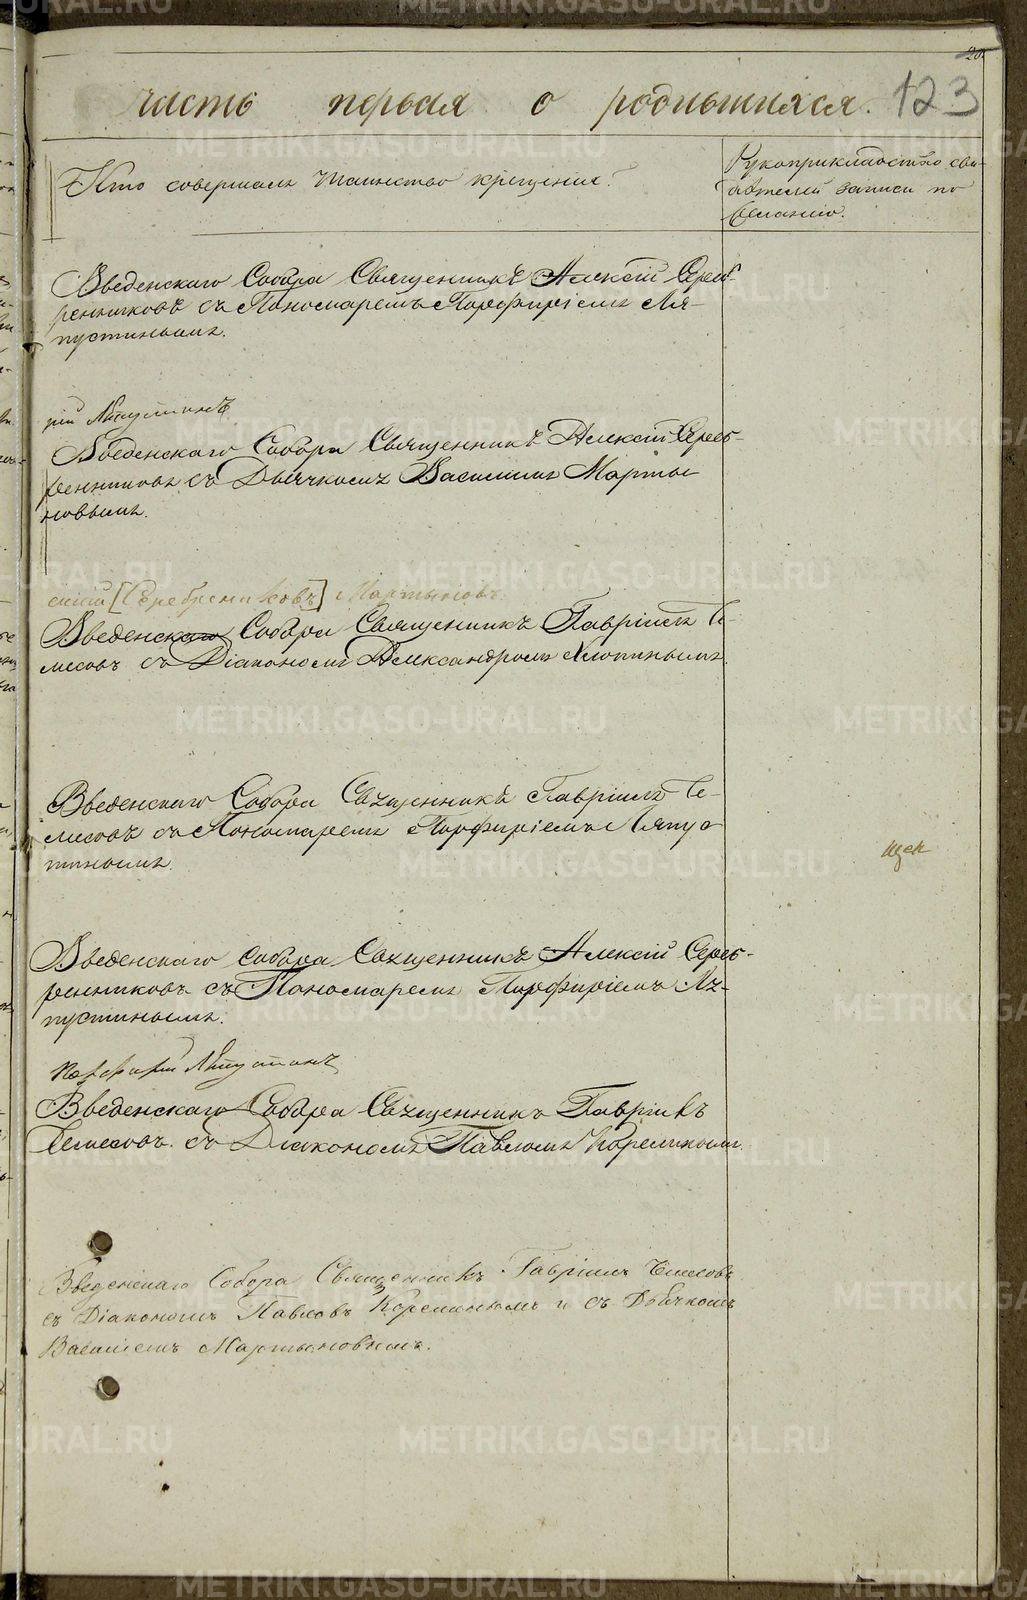 20
часть первая о родившихся. 123
Кто совершалъ таинство крещенія?
Рукоприкладство сви-
дѣтелей записи по
желанію.
Введенскаго Собора Священникъ Алексій Сереб-
ренниковъ съ Пономаремъ Порфиріемъ Ля-
пустинымъ.
рій Ляпустинъ
Введенскаго Собора Священникъ Алексій Сереб-
ренниковъ съ Дьячкомъ Василіемъ Марты
новымъ.
[Серебрениковъ] Мартыновъ
Введенскаго Собора Священникъ Гавріилъ Бѣ-
лесовъ съ Діакономъ Александромъ Хлопинымъ.
Введенскаго Собора Священникъ Гавріилъ Бе-
лесовъ съ Пономаремъ Порфиріемъ Ляпус
тинымъ.
Введенскаго Собора Священникъ Алексій Сереб-
ренниковъ съ Пономаремъ Порфиріемъ Ля-
пустинымъ.
Порфирій Ляпустинъ
Введенскаго Собора Священникъ Гавріилъ
съ Діакономъ Павломъ Корелинымъ.
Введенскаго Собора Священникъ Гавріилъ
съ Діакономъ Павловъ Корелинымъ и съ Дьячкомъ
Василіемъ Мартыновымъ.
METRIKI.GASO-URAL.RU